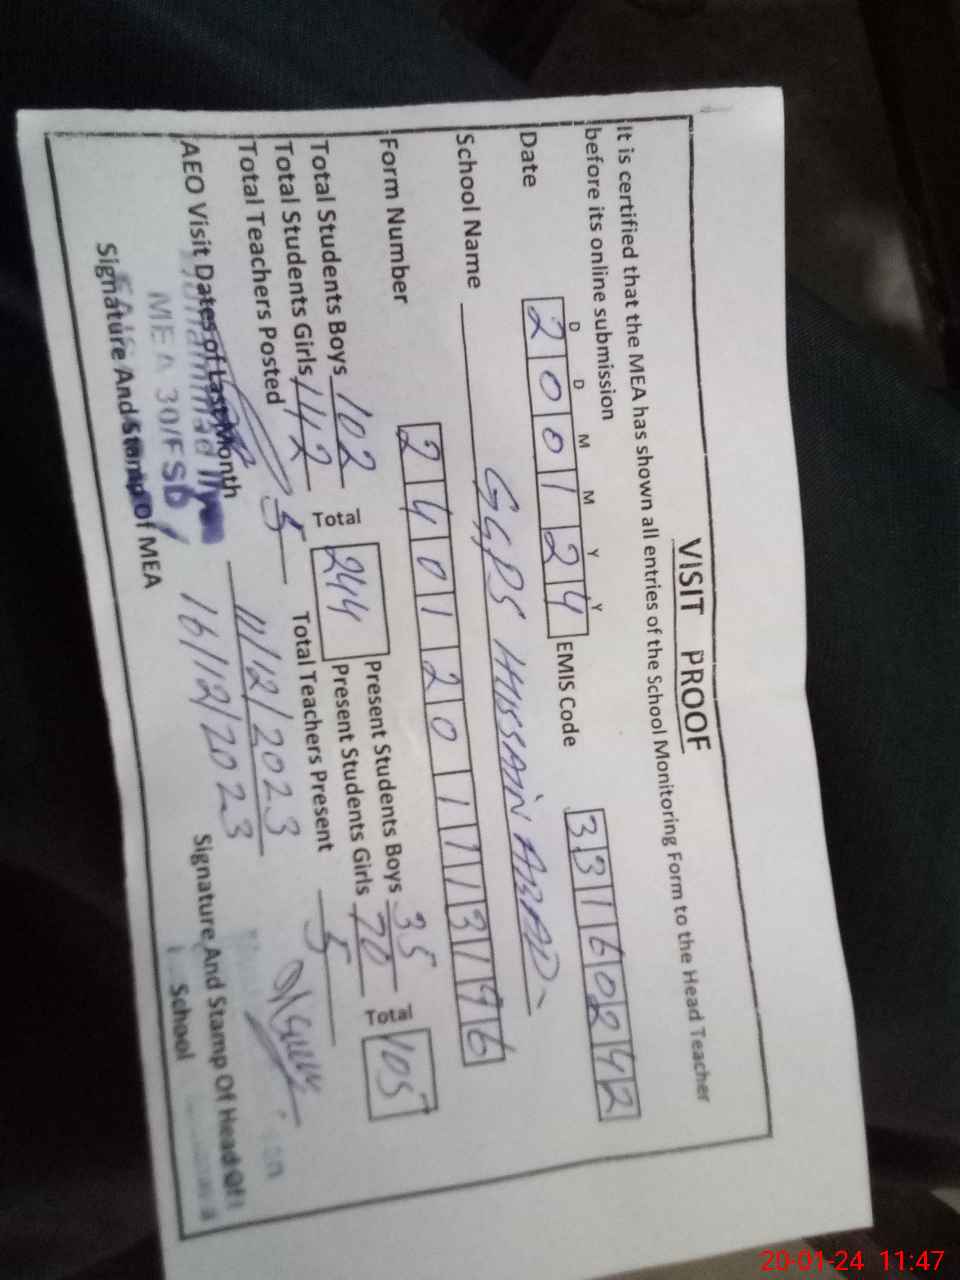 VISIT PROOF
It is certified that the MEA has shown all entries of the School Monitoring Form to the Head Teacher
before its online submission
D D M M Y Y
Date 200124 EMIS Code 33160242
School Name GGPS HUSSAIN ABAD
Form Number 2401201113196
Total Students Boys 102 Total 244 Present Students Boys 35 Total 105
Total Students Girls 142 Present Students Girls 70
Total Teachers Posted 5 Total Teachers Present 5
AEO Visit Dates of Last Month 11/12/2023
16/12/2023
MEA 30/FSD
Signature And Stamp Of MEA
Signature And Stamp Of Head Of
School
20-01-24 11:47